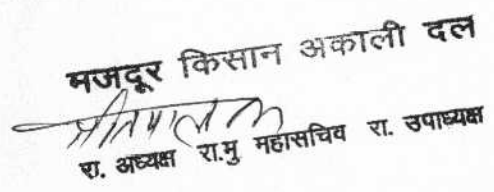 मजदूर किसान अकाली दल
रा. अध्यक्ष रा.मु महासचिव रा. उपाध्यक्ष